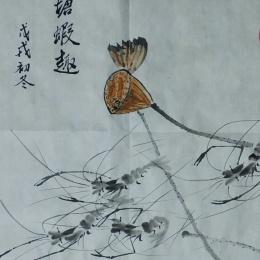 塘蝦趣
戊戌初冬